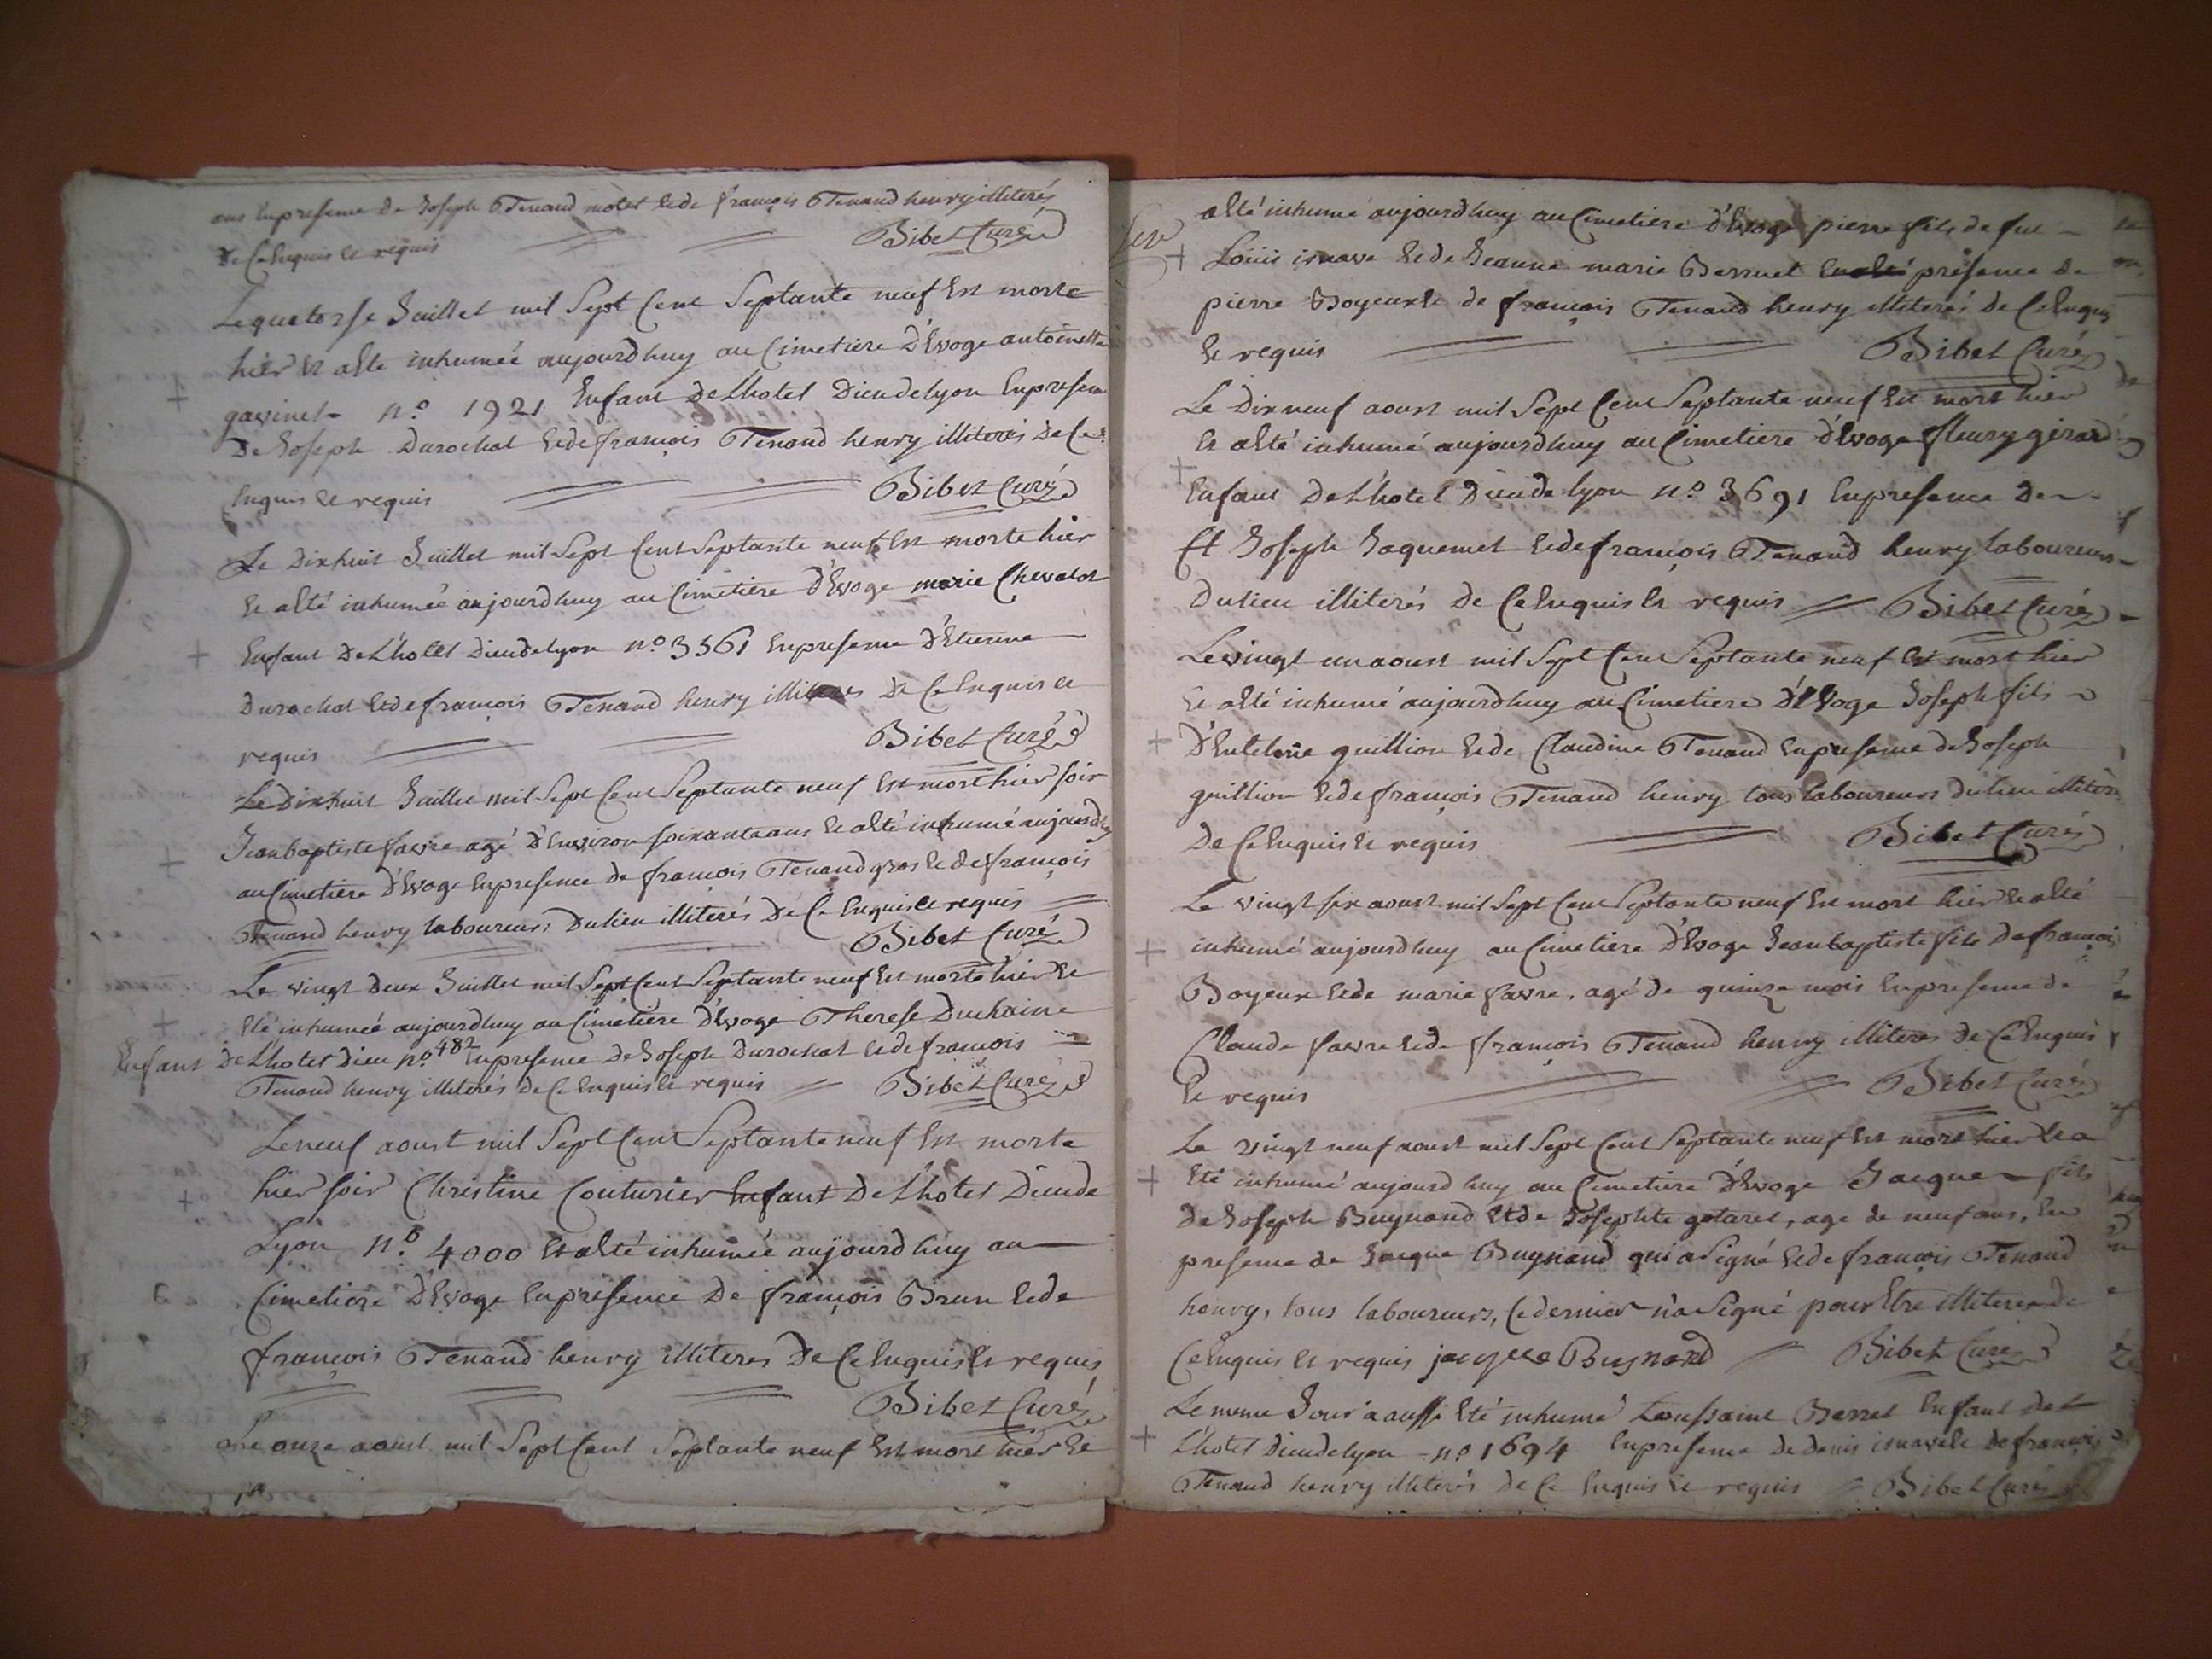 ans en presence de Joseph Tenand motet et de françois Tenand henry illiterés
de ce enquis et requis Bibet Curé
Le quatorse Juillet mil Sept Cent Septante neuf est morte
hier et a été inhumée aujourdhuy au Cimetiere D'Evoge antoinette
gavinet n.o 1921 Enfant De L'hotel Dieu de lyon En presence
De Joseph Durochat et de françois Tenand henry illiterés De Ce
Enquis et requis Bibet Curé
Le Dixhuit Juillet mil Sept Cent Septante neuf Est morte hier
et a été inhumée aujourdhuy au Cimetiere D'Evoge marie Chevalot
Enfant De L'hotel Dieu de lyon n.o 3561 En presence D'Etienne
Durochat et de françois Tenand henry illiteres De Ce Enquis et
requis Bibet Curé
Le Dixhuit Juillet mil Sept Cent Septante neuf Est mort hier soir
Jean baptiste favre agé D'Environ soixante ans et a été inhumé aujourdhuy
au Cimetiere D'Evoge En presence de françois Tenand gros et de françois
Tenand henry laboureurs Du lieu illiterés De Ce Enquis et requis
Bibet Curé
Le vingt Deux Juillet mil Sept Cent Septante neuf Est morte hier et
Eté inhumée aujourdhuy au Cimetiere D'Evoge Therese Duchaine
Enfant De L'hotel Dieu n.o 482 En presence De Joseph Durochat et de francois
Tenand henry illiterés de Ce Enquis et requis Bibet Curé
Le neuf aoust mil Sept Cent Septante neuf Est morte
hier soir Christine Couturier Enfant De L'hotel Dieu de
Lyon n.o 4000 Et a été inhumée aujourdhuy au
Cimetiere D'Evoge En presence De françois Brun et de
françois Tenand henry illiteres De Ce Enquis et requis
Bibet Curé
Le onze aoust mil Sept Cent Septante neuf Est mort hier et
a été inhumé aujourdhuy au Cimetiere D'Evoge pierre fils de feu
Loüis isnave et de Jeanne marie Bernuet presence de
pierre Boyeux et de françois Tenand henry illiterés de Ce Enquis
et requis Bibet Curé
Le Dix neuf aoust mil Sept Cent Septante neuf Est mort hier
et a été inhumé aujourdhuy au Cimetiere D'Evoge fleury girard
Enfant De L'hotel Dieu de lyon n.o 3691 En presence De
Et Joseph Jaquemet et de françois Tenand henry laboureurs
Du lieu illiterés De Ce Enquis et requis Bibet Curé
Le vingt un aoust mil Sept Cent Septante neuf Est mort hier
et a été inhumé aujourdhuy au Cimetiere D'Evoge Joseph fils
guillion et de Claudine Tenand En presence de Joseph
guillion et de françois Tenand henry tous laboureurs du lieu illiterés
De Ce Enquis et requis Bibet Curé
Le vingt six aoust mil Sept Cent Septante neuf Est mort hier et a été
inhumé aujourdhuy au Cimetiere D'Evoge Jean baptiste fils De françois
Boyeux et de marie favre, agé de quinze mois En presence de
Claude favre et de françois Tenand henry illiteres De Ce Enquis
Et requis Bibet Curé
Le vingt neuf aoust mil Sept Cent Septante neuf Est mort hier et a
Eté inhumé aujourdhuy au Cimetiere D'Evoge Jacque fils
De Joseph Buynand et de Josephte gotaret, age de neuf ans, En
presence de Jacque Buynand qui a Signé et de françois Tenand
henry, tous laboureurs, Ce dernier n'a Signé pour Etre illiteré de
Ce Enquis et requis jacque Buynand Bibet Curé
Le meme Jour a aussi Eté inhumé Toussaint Berret Enfant de
L'hotel Dieu de lyon n.o 1694 En presence de denis isnave et de françois
Tenand henry illiterés De Ce Enquis et requis Bibet Curé